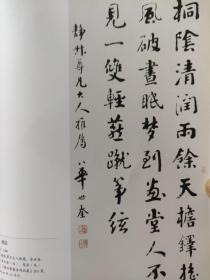 桐陰清潤雨餘天檐鐸摇
風破晝眠梦到畫堂人不
見一雙輕燕蹴筝絃
静尊兄大人雅屬
華世奎